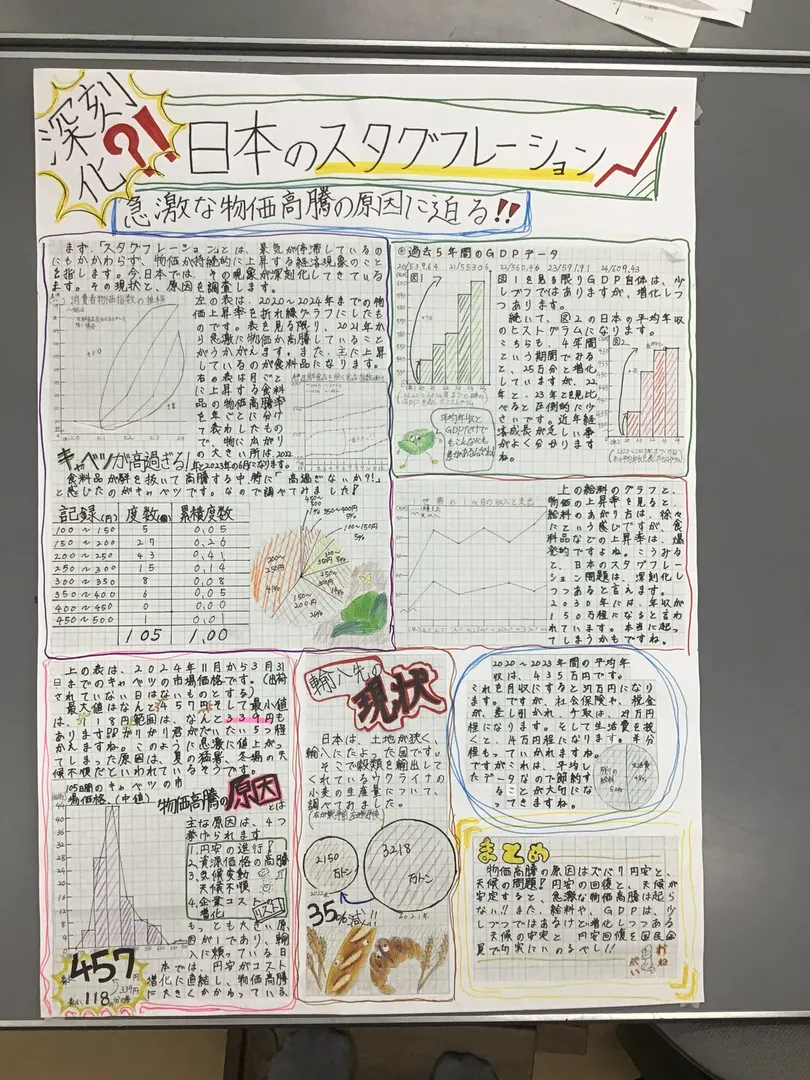 深刻化?!
日本のスタグフレーション
急激な物価高騰の原因に迫る!!
まず、「スタグフレーション」とは、景気が停滞しているの
にもかかわらず、物価が持続的に上昇する経済現象のこと
を指します。今、日本では、その現象が深刻化してきてい
ます。その現状と、原因を調査します。
消費者物価指数の推移
左の表は、2020~2024年までの物
価上昇率を折れ線グラフにしたも
のです。表を見る限り、2021年か
ら急激に物価が高騰していること
がうかがえます。また、主に上昇
しているのが食料品になります。
右の表は月ごと
に上昇する食料
品の物価高騰率
を年ごとに分け
て表わしたもの
で、特に広がり
の大きい所は、2022
年と2023年の6月になります。
キャベツが高過ぎる!
食料品が群を抜いて高騰する中、特に「高過ぎないか?!」
と感じたのがキャベツです。なので調べてみました!
記録(円) 度数(個) 累積度数
100~150 5 0.05
150~200 27 0.26
200~250 43 0.41
250~300 15 0.14
300~350 8 0.08
350~400 6 0.05
400~450 0 0.00
450~500 1 0.01
105 1.00
200~250円 41%
150~200円 26%
100~150円 5%
過去5年間のGDPデータ
20/539.64 21/553.06 22/560.46 23/591.91 24/609.43
図1
図1を見る限りGDP自体は、少
しづつではありますが、増化しつ
つあります。
続いて、図2の日本の平均年収
のヒストグラムになります。
こちらも、4年間
という期間でみる
と、25万分と増化
していますが、22
年と、23年とを見比
べると圧倒的に少
さいです。近年経
済成長が乏しい事
がよく分ります
ね。
図2
平均年収と
GDPだけでも
世帯の1ヶ月の収入と支出
上の給料のグラフと、
物価の上昇率を見ると、
給料のあがり方は、徐々
にという感じですが、食
料品などの上昇率は、爆
発的ですよね。こうみる
と、日本のスタグフレー
ション問題は、深刻化し
つつあると言えます。
2030年には、年収が
150万程になると言わ
れています。本当に起っ
てしまうかもですね。
上の表は、2024年11月から3月31
日までのキャベツの市場価格です。(出荷
されていない日はないものとする)
最大値はなんと457円、そして最小値
は、118円範囲は、なんと339円も
ありますガリガリ君がだいたい5つ程
かえますね。このように急激に値上がっ
てしまった原因は、夏の猛暑、冬場の天
候不順だといわれているそうです。
105日間のキャベツの市
場価格、(中値)
457
118
物価高騰の原因とは
主な原因は、4つ
挙げられます
1.円安の進行!
2.資源価格の高騰
3.気候変動
天候不順
4.企業コスト
増化
もっとも大きい原
因が1であり、輸
入に頼っている日
本では、円安がコスト
増化に直結し、物価高騰
に大きくかかわっている、
輸入先の現状
日本は、土地が狭く、
輸入にたよった国です。
そこで穀物を輸出して
くれているウクライナの
小麦の生産量について、
調べてみました。
2150
万トン
3218
万トン
2021年
35%減!!
2020~2023年間の平均年
収は、435万円です。
これを月収にすると約万円になり
ます。ですが、社会保険や、税金
が、差し引かれ、手取は、万円
程になります。そして生活費を抜
くと、14万円程になります。半分
程もっていかれますね。
ですがこれは、平均し
たデータなので節約す
ることが大切にな
ってきますね。
生活費
48%
残りの
給料
52%
まとめ
物価高騰の原因はズバリ円安と、
天候の問題!円安の回復と、天候が
安定すると、急激な物価高騰は起ら
ない!!また、給料や、GDPは、少
しづつではあるけど増化しつつある
天候の安定と、円安回復を国民全
員で切実にいのるべし!!